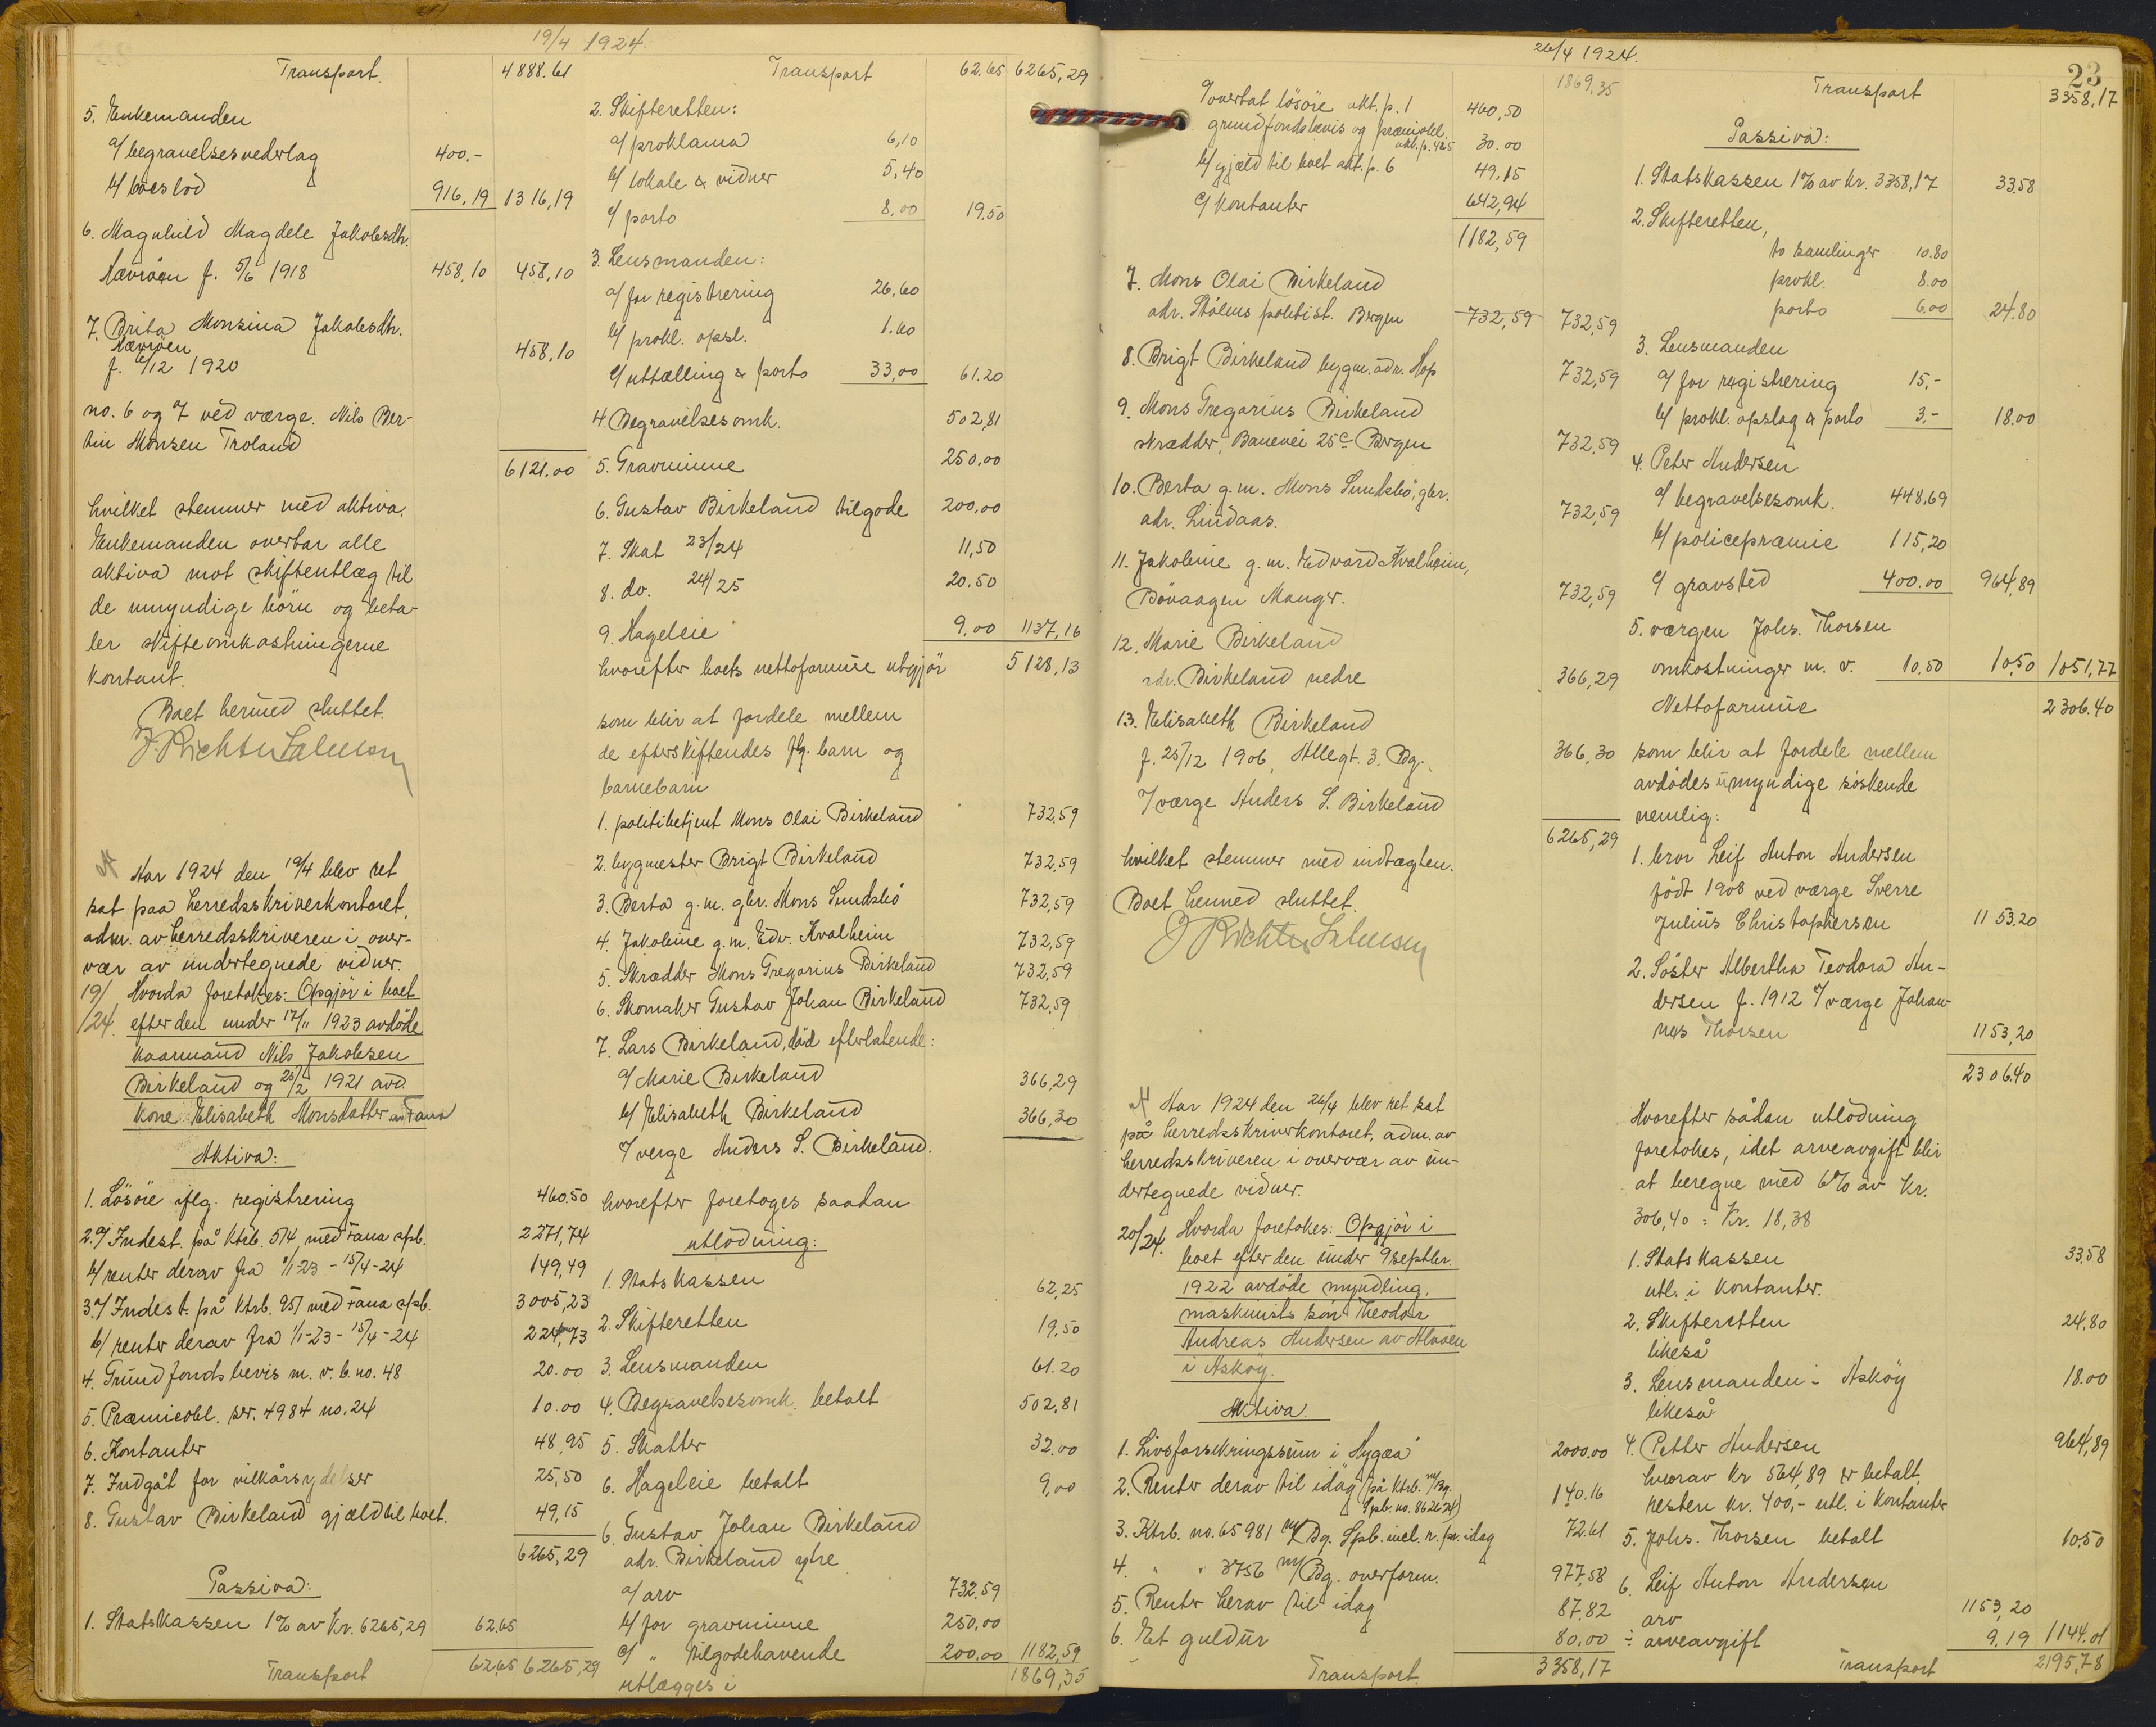 19/4 1924.
Transport. 4888.61
5. Enkemanden
a/ begravelsesvederlag 400.-
b/ boeslod 916,19 1316,19
6. Magnhild Magdele Jakobsdtr.
Ævröen f. 5/6 1918 458,10 458,10
7. Brita Monsina Jakobsdtr.
Ævröen
f. 6/12 1920 458,10
no. 6 og 7 ved værge. Nils Ber-
tin Monsen Troland
6121.00
hvilket stemmer med aktiva.
Enkemanden overtar alle
aktiva mot skifteutlæg til
de umyndige börn og beta-
ler skifteomkostningerne
kontant.
Boet hermed sluttet.
J. Richter Salvesen
Aar 1924 den 19/4 blev ret
sat paa herredsskriverkontoret,
adm. av herredsskriveren i over-
vær av undertegnede vidner.
19/24. Hvorda foretokes: Opgjör i boet
efter den under 17/11 1923 avdöde
kaarmand Nils Jakobsen
Birkeland og 25/2 1921 avd.
kone Elisabeth Monsdatter av Fana
Aktiva:
1. Lösöre iflg. registrering 460.50
2. a/ Indest. på ktrb. 514 med Fana spb. 2271,74
b/ renter derav fra 1/1-23 - 15/4-24 149,49
3. a/ Indest. på ktrb. 951 med Fana spb. 3005,23
b/ renter derav fra 1/1-23 - 15/4-24 224,73
4. Grundfondsbevis m. v. b. no. 48 20.00
5. Præmieobl. ser. 4984 no. 24 10.00
6. Kontanter 48,95
7. Indgåt for vilkårsydelser 25,50
8. Gustav Birkeland gjæld til boet. 49,15
6265,29
Passiva:
1. Statskassen 1% av Kr. 6265,29 62.65
Transport 62.65 6265,29
Transport 62.65 6265,29
2. Skifteretten:
a/ proklama 6,10
b/ lokale & vidner 5,40
c/ porto 8,00 19.50
3. Lensmanden:
a/ for registrering 26,60
b/ prokl. opsl. 1.60
c/ uttælling & porto 33,00 61.20
4. Begravelsesomk. 502,81
5. Gravminne 250,00
6. Gustav Birkeland tilgode 200,00
7. Skat 23/24 11,50
8. do. 24/25 20.50
9. Hageleie 9,00 1137,16
hvorefter boets nettoformue utgjör 5128,13
som blir at fordele mellem
de efterskiftendes flg. barn og
barnebarn
1. politibetjent Mons Olai Birkeland 732,59
2. bygmester Brigt Birkeland 732,59
3. Berta g. m. gbr. Mons Sundsbö 732,59
4. Jakobine g. m. Edv. Kvalheim 732,59
5. Skrædder Mons Gregorius Birkeland 732,59
6. Skomaker Gustav Johan Birkeland 732,59
7. Lars Birkeland, död efterlatende:
a/ Marie Birkeland 366,29
b/ Elisabeth Birkeland 366,30
v/ verge Anders S. Birkeland.
hvorefter foretoges saadan
utlodning:
1. Statskassen 62,25
2. Skifteretten 19,50
3. Lensmanden 61.20
4. Begravelsesomk. betalt 502,81
5. Skatter 32.00
6. Hageleie betalt 9,00
6. Gustav Johan Birkeland
adr. Birkeland ytre
a/ arv 732.59
b/ for gravminne 250,00
c/ " tilgodehavende 200.00 1182,59
utlægges i 1869,35
26/4 1924.
1869,35
a/ overtat lösöre akt. p. 1 460,50
grundfondsbevis og præmieobl.
akt. p. 4 & 5 30.00
b/ gjæld til boet akt. p. 6 49,15
c/ Kontanter 642,94
1182,59
7. Mons Olai Birkeland
adr. Stölens politist. Bergen 732,59 732,59
8. Brigt Birkeland bygm. adr. Hop 732,59
9. Mons Gregorius Birkeland
skrædder, Banevei 25c Bergen 732,59
10. Berta g. m. Mons Sundsbö, gbr.
adr. Lindaas. 732,59
11. Jakobine g. m. Edvard Kvalheim,
Bövaagen Manger. 732,59
12. Marie Birkeland
adr. Birkeland nedre 366,29
13. Elisabeth Birkeland
f. 25/12 1906, Allegt. 3. Bg. 366,30
v/ værge Anders S. Birkeland
6265,29
hvilket stemmer med indtægten.
Boet hermed sluttet.
J. Richter Salvesen
Aar 1924 den 26/4 blev ret sat
på herredsskriverkontoret, adm. av
herredsskriveren i overvær av un-
dertegnede vidner.
20/24. Hvorda foretokes: Opgjör i
boet efter den under 9 septbr.
1922 avdöde myndling,
maskinists sön Theodor
Andreas Andersen av Alvöen
i Asköy.
Aktiva.
1. Livsforsikringssum i "Hygæa" 2000.00
2. Renter derav til idag (på ktrb. m/ Bg.
Spb. no. 862624) 140.16
3. Ktrb. no. 65981 m/ Bg. Spb. incl. r. pr. idag 72.61
4. " " 3756 m/ Bg. overform. 977,58
5. Renter herav til idag 87.82
6. Et guldur 80,00
Transport. 3358,17
23
Transport 3358,17
Passiva:
1. Statskassen 1% av kr. 3358,17 33.58
2. Skifteretten,
to samlinger 10.80
prokl. 8.00
porto 6.00 24.80
3. Lensmanden
a/ for registrering 15,-
b/ prokl. opslag & porto 3,- 18.00
4. Peter Andersen
a/ begravelsesomk. 448,69
b/ policepræmie 115,20
c/ gravsted 400.00 964,89
5. værgen Johs. Thorsen
omkostninger m. v. 10,50 10,50 1051,77
Nettoformue 2306.40
som blir at fordele mellem
avdödes umyndige söskende
nemlig:
1. bror Leif Anton Andersen
födt 1908 ved værge Sverre
Julius Christophersen 1153,20
2. Söster Albertha Teodora An-
dersen f. 1912 v/ værge Johan-
nes Thorsen 1153,20
2306.40
Hvorefter sådan utlodning
foretokes, idet arveavgift blir
at beregne med 6% av Kr.
306,40 = Kr. 18,38
1. Statskassen 33.58
utl. i kontanter.
2. Skifteretten 24,80
likeså
3. Lensmanden i Asköy 18.00
likeså
4. Petter Andersen 964,89
hvorav kr 564,89 er betalt,
resten kr. 400,- utl. i kontanter
5. Johs. Thorsen betalt 10.50
6. Leif Anton Andersen
arv 1153,20
÷ arveavgift 9.19 1144.01
Transport 2195,78